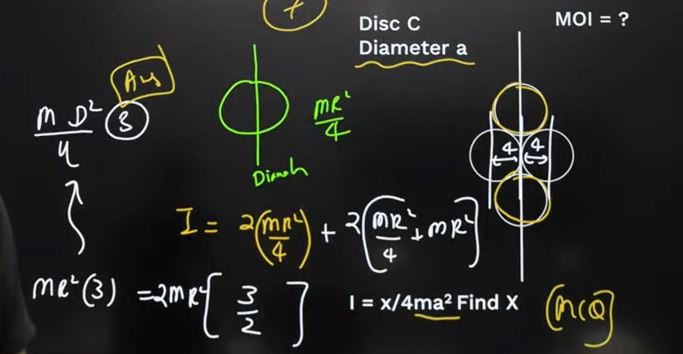 7
Disc C
Diameter a
MOI = ?
Ans
m D² 3
4
mR²
4
4 4
I = 2(mR²/4) + 2[mR²/4 + mR²]
mR²(3) = 2mR²[3/2]
I = x/4ma² Find X
(MCQ]